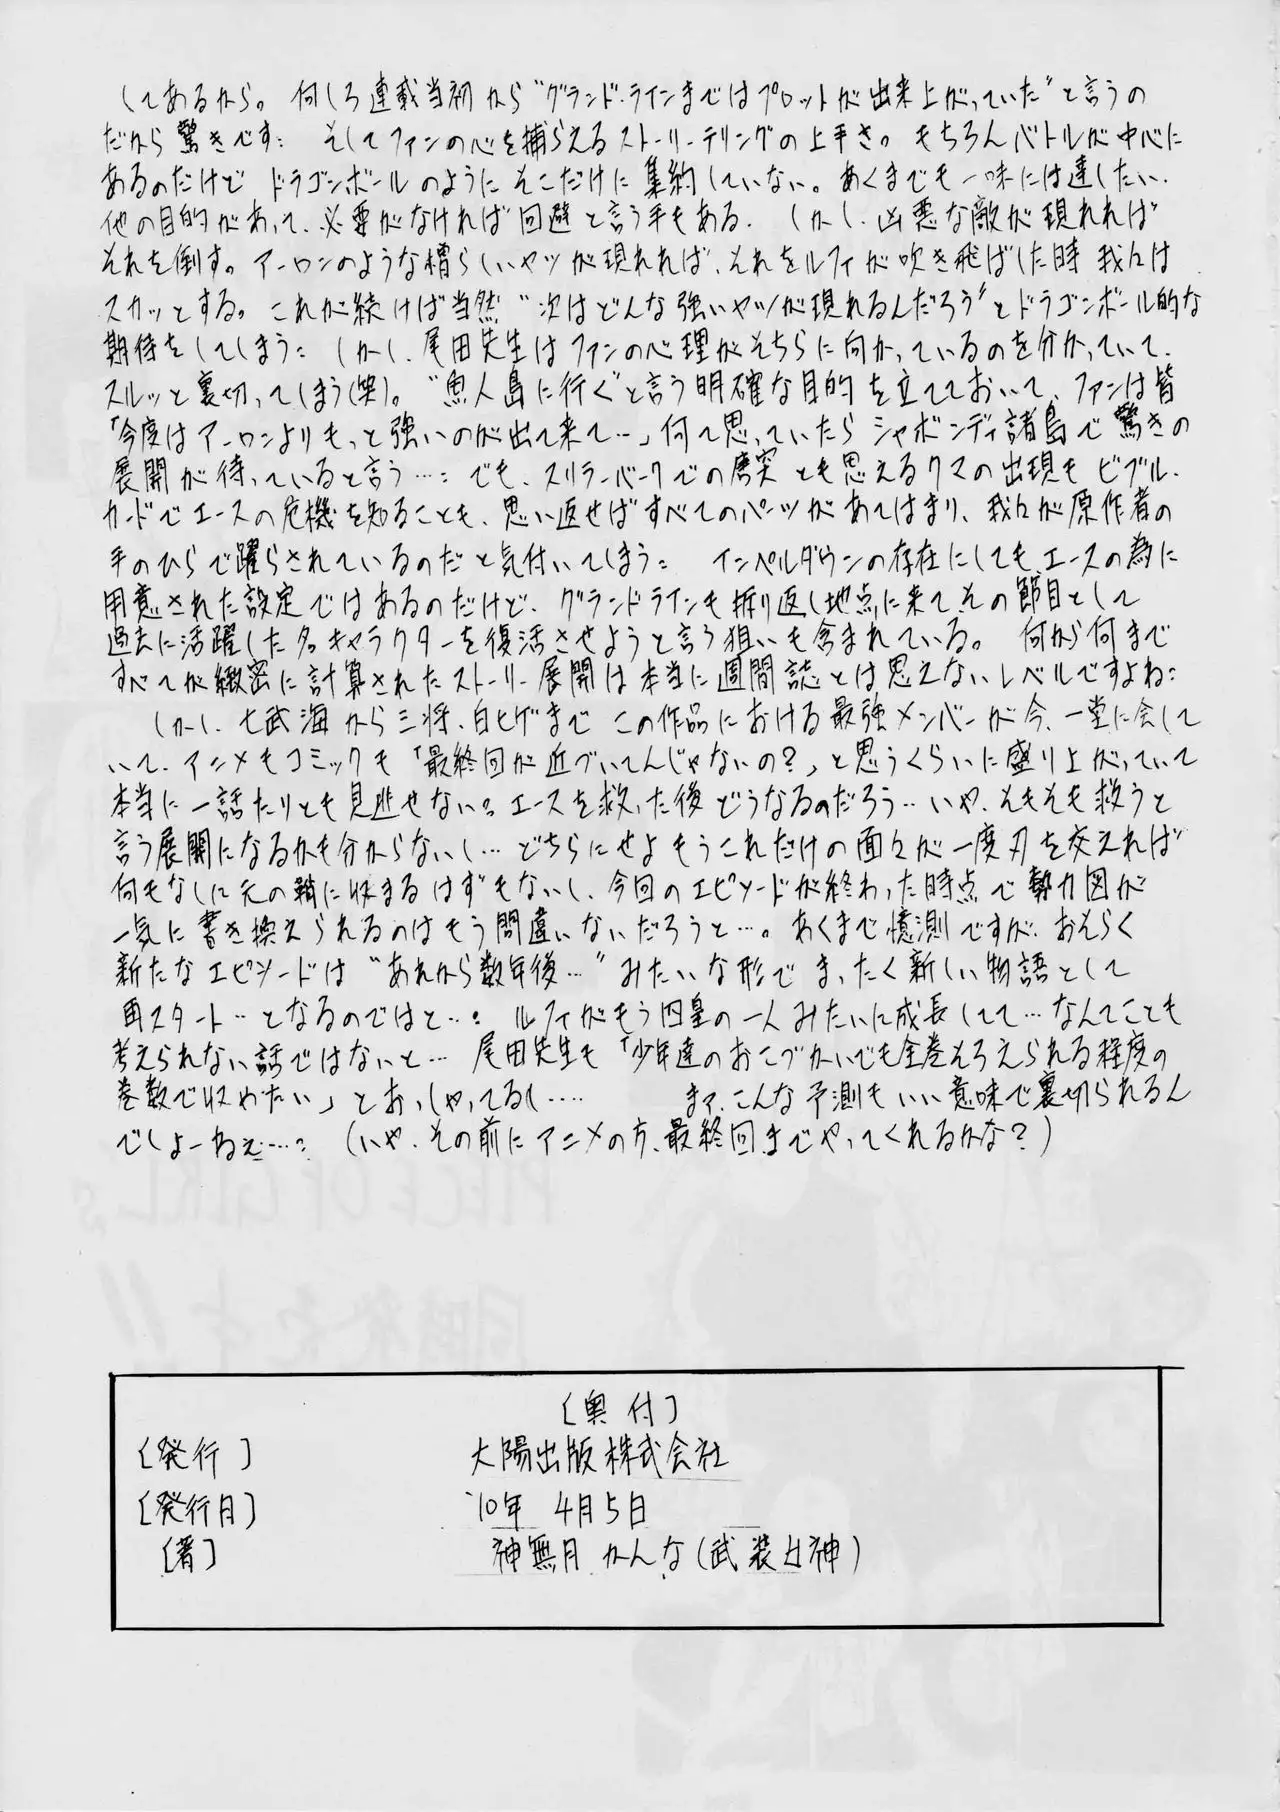 してあるから。何しろ連載当初から“グランド・ラインまではプロットが出来上がっていた”と言うの
だから驚きです: そしてファンの心を捕らえるストーリーテリングの上手さ。もちろんバトルが中心に
あるのだけど ドラゴンボールのようにそこだけに集約していない。あくまでも一味には達したい、
他の目的があって、必要がなければ回避と言う手もある。しかし、凶悪な敵が現れれば
それを倒す。アーロンのような憎らしいヤツが現れれば、それをルフィが吹き飛ばした時 我々は
スカッとする。これが続けば当然“次はどんな強いヤツが現れるんだろう”とドラゴンボール的な
期待をしてしまう: しかし、尾田先生はファンの心理がそちらに向かっているのを分かっていて、
スルッと裏切ってしまう(笑)。“魚人島に行く”と言う明確な目的を立てておいて、ファンは皆
「今度はアーロンよりもっと強いのが出て来て…」何て思っていたら シャボンディ諸島で驚きの
展開が待っていると言う…: でも、スリラーバークでの唐突とも思えるクマの出現も ビブル・
カードでエースの危機を知ることも、思い返せばすべてのパーツがあてはまり、我々が原作者の
手のひらで躍らされているのだと気付いてしまう: インペルダウンの存在にしても、エースの為に
用意された設定ではあるのだけど、グランドラインも折り返し地点に来て、その節目として
過去に活躍した名キャラクターを復活させようと言う狙いも含まれている。何から何まで
すべてが緻密に計算されたストーリー展開は本当に週間誌とは思えないレベルですよね:
しかし、七武海から三将、白ヒゲまで この作品における最強メンバーが今、一堂に会して
いて、アニメもコミックも「最終回が近づいてんじゃないの?」と思うくらいに盛り上がっていて
本当に一話たりとも見逃せない? エースを救った後どうなるのだろう… いや、そもそも救うと
言う展開になるかも分からないし… どちらにせよもうこれだけの面々が一度刃を交えれば
何もなしに元の鞘に収まるはずもないし、今回のエピソードが終わった時点で勢力図が
一気に書き換えられるのはもう間違いないだろうと…。あくまで憶測ですが、おそらく
新たなエピソードは“あれから数年後…”みたいな形で まったく新しい物語として
再スタート…となるのではと…? ルフィがもう四皇の一人みたいに成長してて…なんてことも
考えられない話ではないと… 尾田先生も「少年達のおこづかいでも全巻そろえられる程度の
巻数で収めたい」とおっしゃってるし…. まァ、こんな予測もいい意味で裏切られるん
でしょーねぇ…? (いや、その前にアニメの方、最終回までやってくれるかな?)
[奥付]
[発行] 大陽出版株式会社
[発行日] '10年 4月5日
[著] 神無月かんな(武装女神)